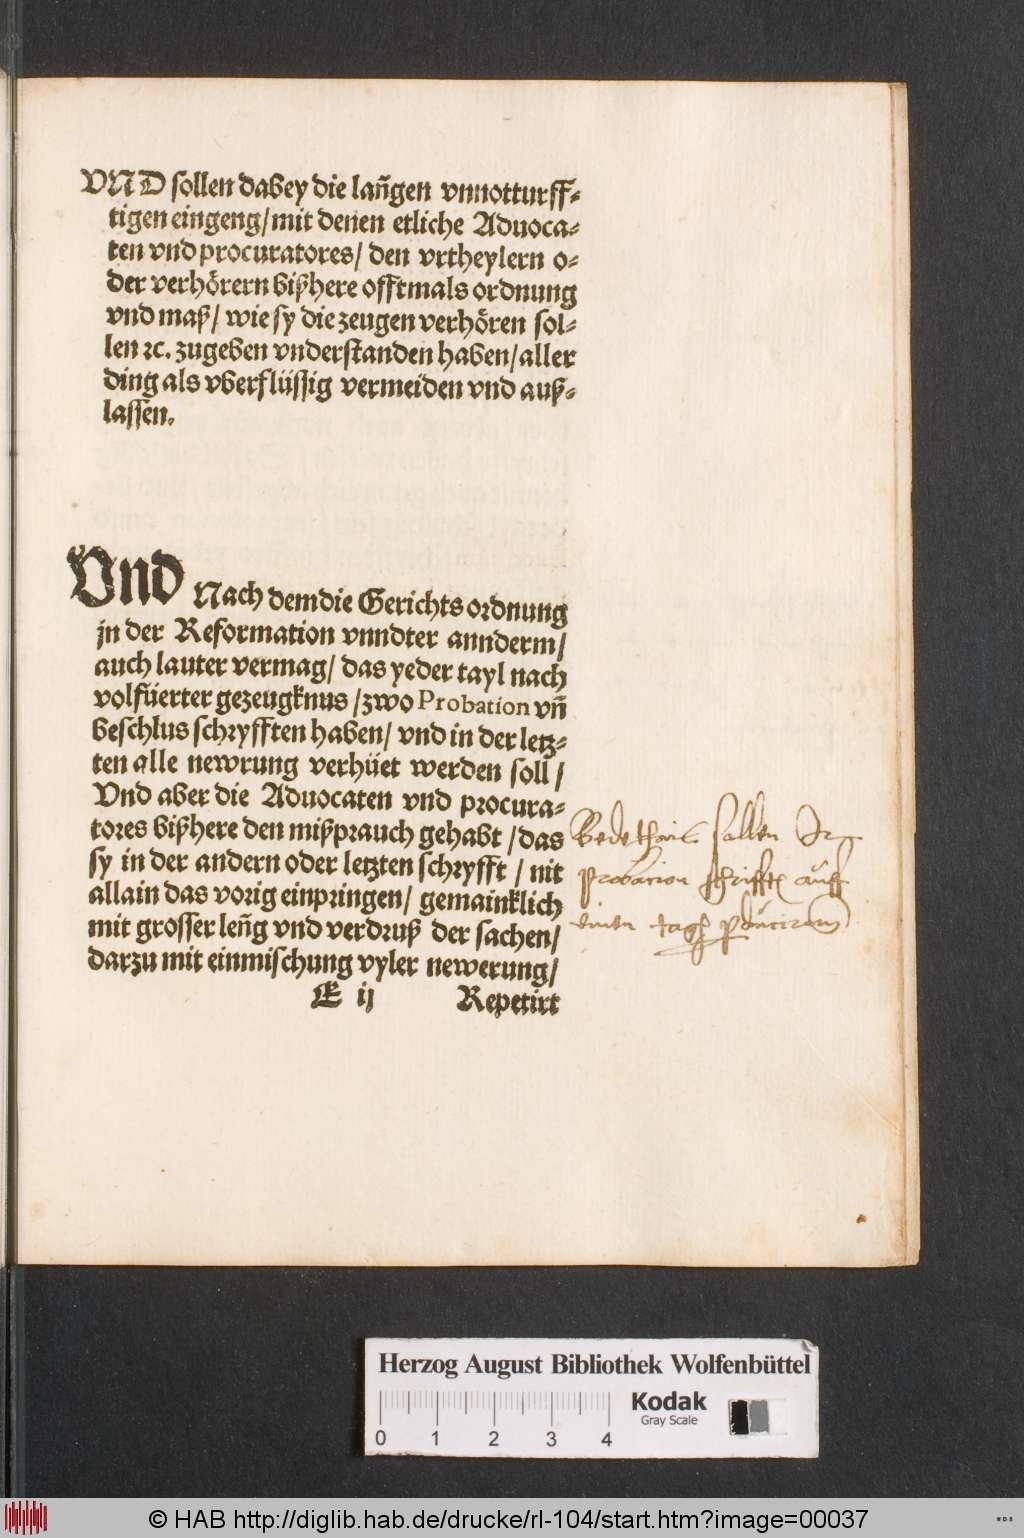 VND sollen dabey die lañgen vnnotturff-
tigen eingeng/mit denen etliche Aduoca-
ten vnd procuratores/ den vrtheylern o-
der verhörern bißhere offtmals ordnung
vnd maß/ wie sy die zeugen verhören sol-
len ꝛc. zugeben vnderstanden haben/aller
ding als vberflüssig vermeiden vnd auß-
lassen.
Vnd Nach dem die Gerichts ordnung
jn der Reformation vnndter annderm/
auch lauter vermag/ das yeder tayl nach
volfüerter gezeugknus/zwo Probation vñ
beschlus schryfften haben/ vnd in der letz-
ten alle newrung verhüet werden soll/
Vnd aber die Aduocaten vnd procura-
tores bißhere den mißprauch gehabt/das
sy in der andern oder letzten schryfft/ nit
allain das vorig einpringen/ gemainklich
mit grosser leñg vnd verdruß der sachen/
darzu mit einmischung vyler newerung/
E ij Repetirt
Bede thail sollen Ir
probacion schrifft auff
einen tag producirn
Herzog August Bibliothek Wolfenbüttel
Kodak
Gray Scale
0 1 2 3 4
© HAB http://diglib.hab.de/drucke/rl-104/start.htm?image=00037